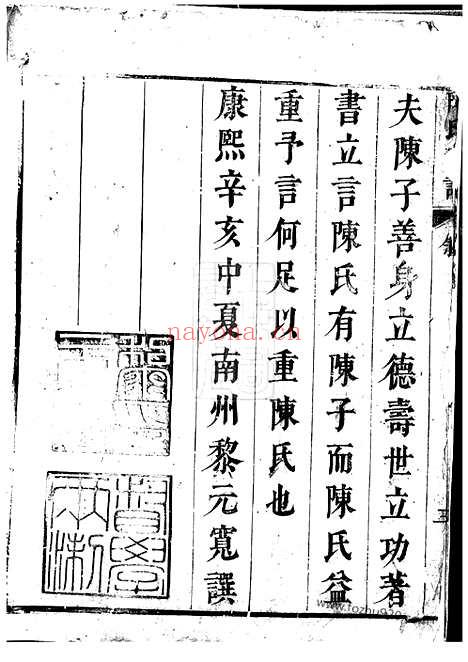 夫陳子善身立德壽世立功著
書立言陳氏有陳子而陳氏益
重予言何足以重陳氏也
康熙辛亥中夏南州黎元寬譔
督學兩浙
三
nayona.cn